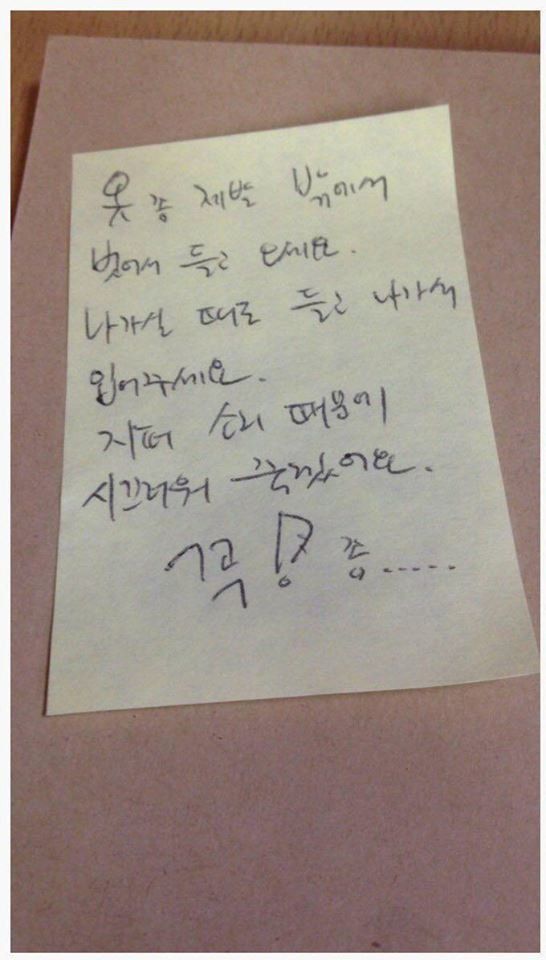 옷 좀 제발 밖에서
벗어서 들고 오세요.
나가실 때도 들고 나가서
입어주세요.
자퍼 소리 때문에
시끄러워 죽겠어요.
꼭 좀.....